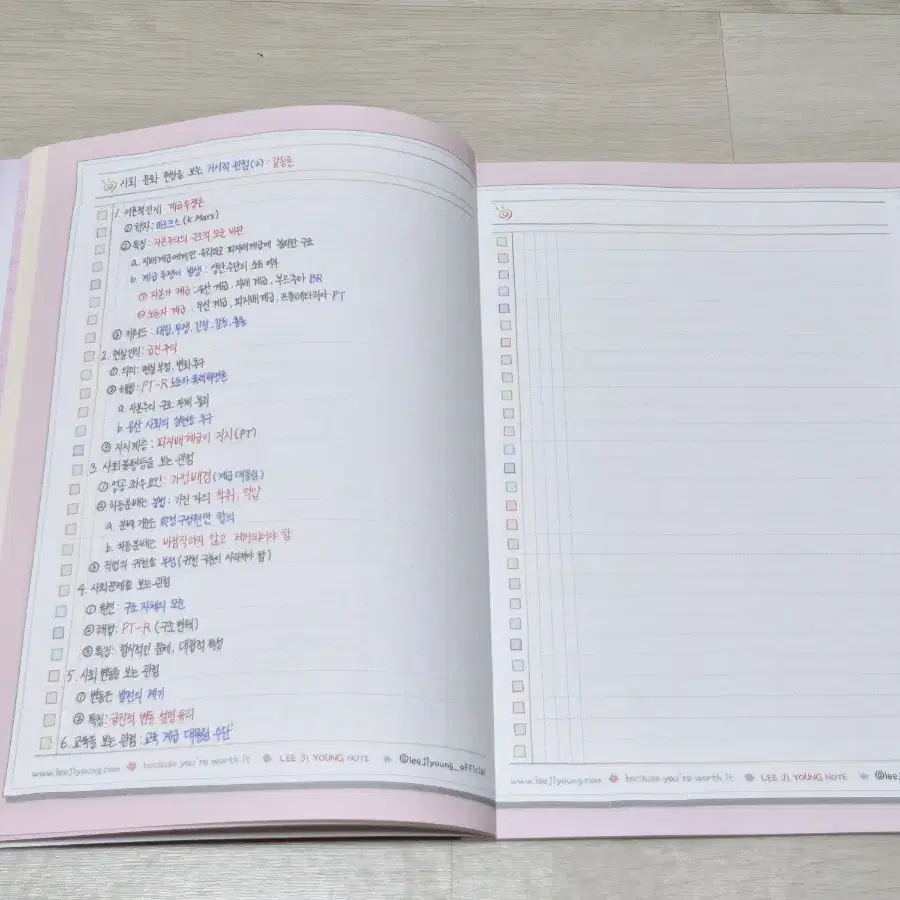 사회·문화 현상을 보는 거시적 관점(2) : 갈등론
1. 이론적 전제: 계급투쟁론
① 학자: 마르크스(K·Marx)
② 특징: 자본주의의 구조적 모순 비판
a. 지배계급에게만 유리하고 피지배계급에 불리한 구조
b. 계급 투쟁이 발생 : 생산수단의 소유 여부
① 자본가 계급 : 유산 계급, 지배 계급, 부르주아 BR
② 노동자 계급 : 무산 계급, 피지배 계급, 프롤레타리아 PT
③ 키워드 : 대립, 투쟁, 긴장, 갈등, 충돌
2. 현상인식: 급진주의
① 의미: 현실 부정, 변화 추구
② 해법: PT-R 노동자 폭력혁명론
a. 자본주의 구조 자체 붕괴
b. 공산 사회의 실현을 추구
③ 지지계층 : 피지배 계급이 지지(PT)
3. 사회불평등을 보는 관점
① 성공 좌우요인: 가정배경(계급 대물림)
② 차등분배는 불법 : 가진 자의 착취, 억압
a. 분배 기준은 특정구성원만 합의
b. 차등분배는 바람직하지 않고 제거되어야 함
③ 직업의 귀천을 부정(귀천 구분이 사라져야 함)
4. 사회문제를 보는 관점
① 원인: 구조 자체의 모순
② 해법: PT-R (구조 변혁)
③ 특징: 필식적인 문제, 대립적 특성
5. 사회 변동을 보는 관점
① 변동은 발전의 계기
② 특징: 급진적 변동 설명 유리
6. 교육을 보는 관점 : 교육 계급 대물림 수단
www.leejiyoung.com because you're worth it LEE JI YOUNG NOTE @lee_jiyoung_official
www.leejiyoung.com because you're worth it LEE JI YOUNG NOTE @lee_ji